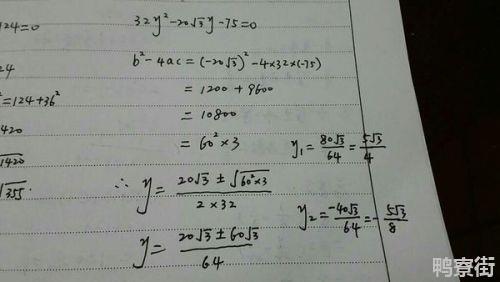 124=0
24
²=124+36²
1420
√1420
√355.
32y²-20√3y-75=0
b²-4ac=(-20√3)²-4×32×(-75)
=1200+9600
=10800
=60²×3
∴ y=(20√3±√(60²×3))/(2×32)
y=(20√3±60√3)/64
y₁=80√3/64=5√3/4
y₂=-40√3/64=-5√3/8
鸭寮街